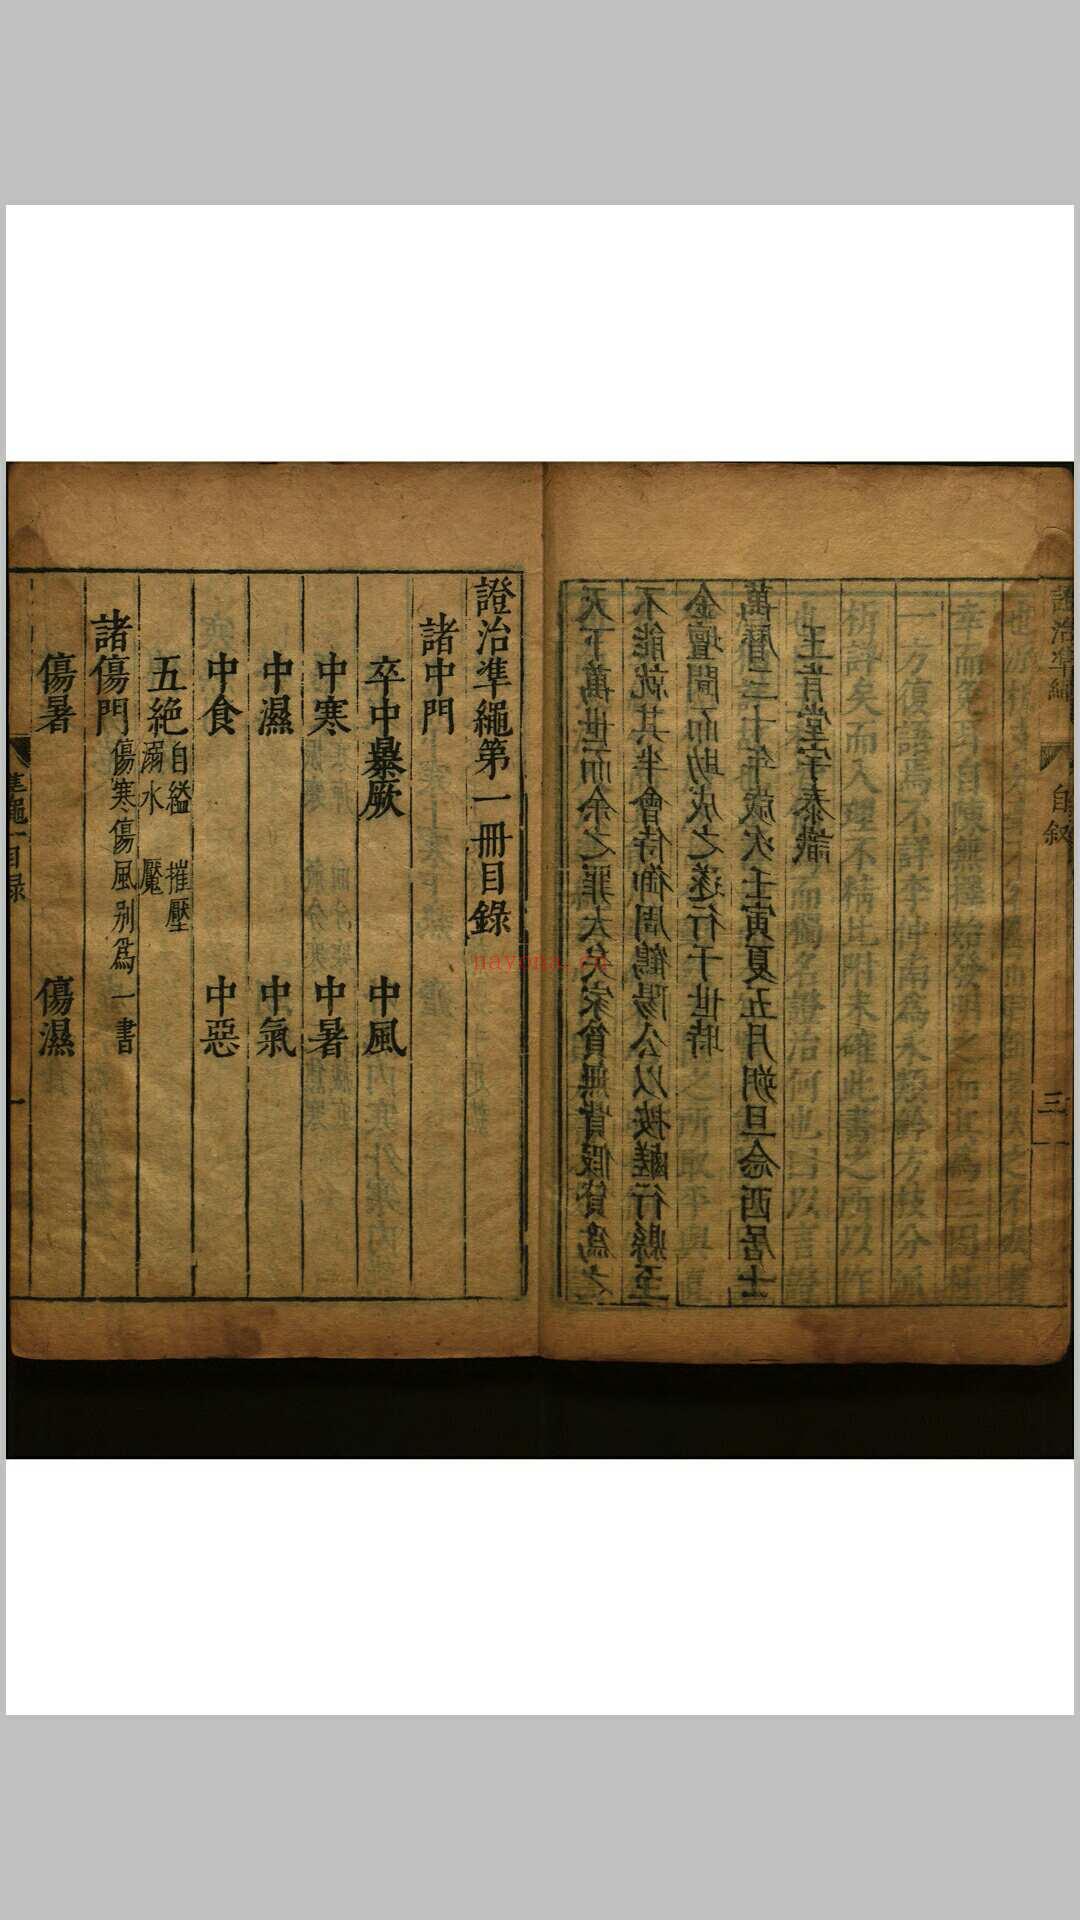 證治準繩 自敘 三
方復語焉不詳李仲南為永類鈐方枝分派
析詳矣而入理不精比附未確此書之所以作
而獨名證治何也曰以言證
天下萬世而余之罪大矣家貧無貲假貸為之
不能就其半會侍御周鶴陽公以按鹺行縣至
金壇聞而助成之遂行于世時
萬曆三十年歲次壬寅夏五月朔旦念西居士
王肯堂宇泰識
證治準繩第一冊目錄
諸中門
卒中暴厥 中風
中寒 中暑
中濕 中氣
中食 中惡
五絕 自縊 摧壓
溺水 魘
諸傷門 傷寒傷風别為一書
傷暑 傷濕
準繩一目錄 一
nayona.cn